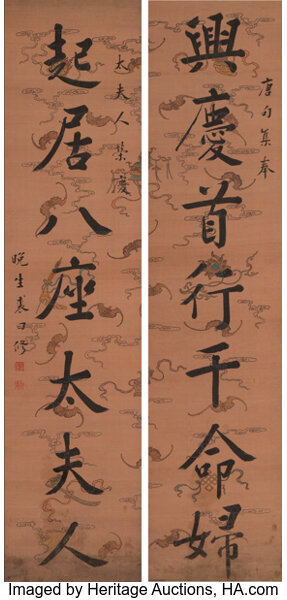 唐句集奉
興慶首行千命婦
太夫人榮慶
起居八座太夫人
晚生裘曰修
Imaged by Heritage Auctions, HA.com